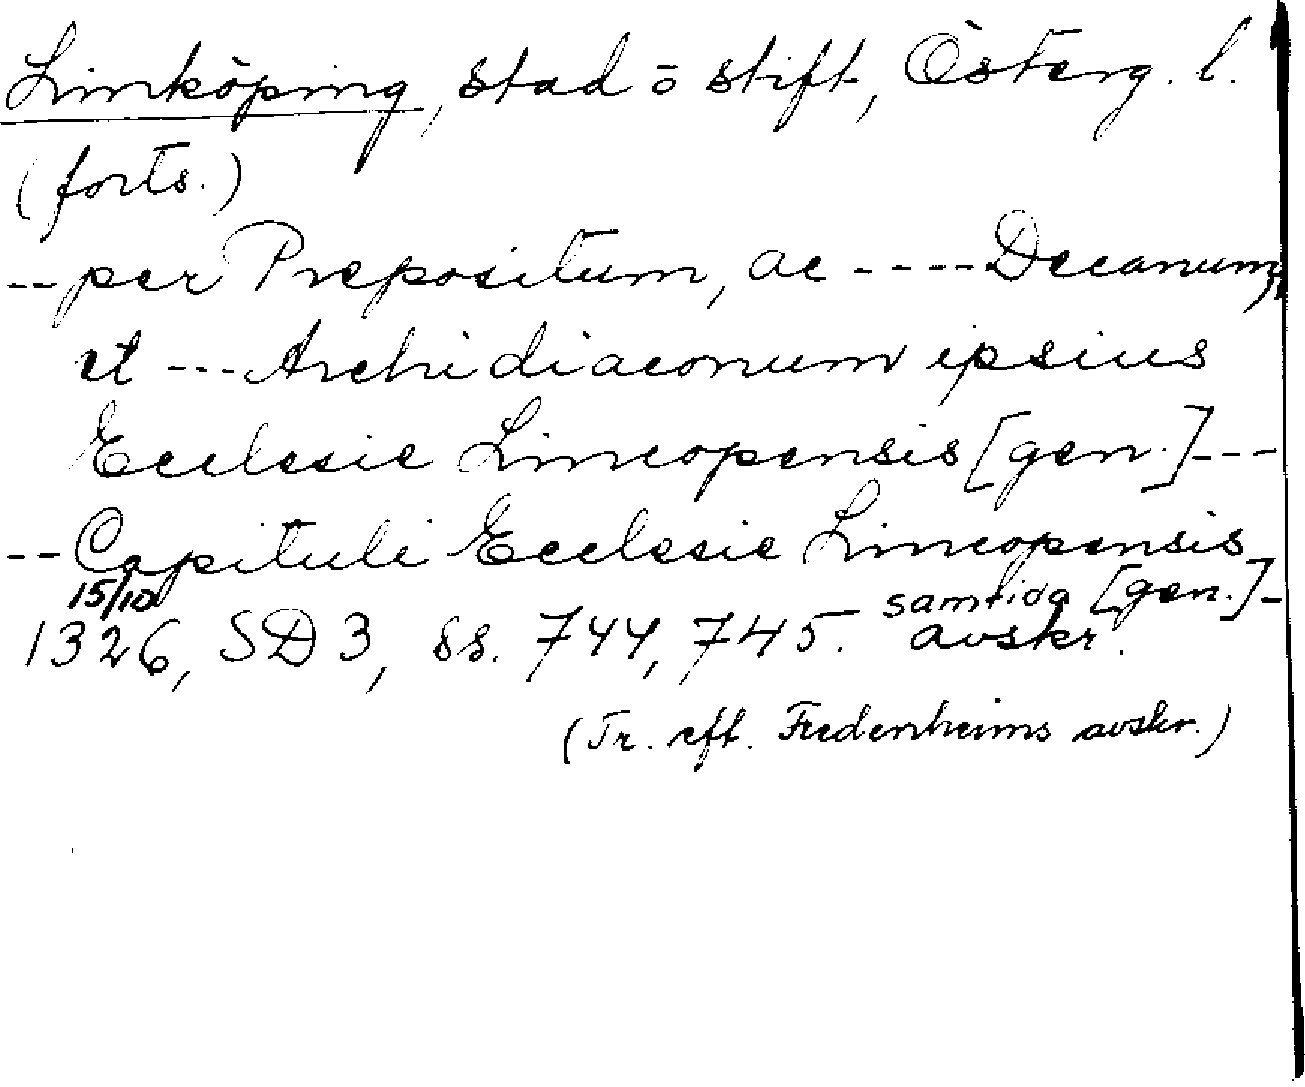 Linköping, stad o stift, Österg. l.
(forts.)
-- per Prepositum, ac ---- Decanum,
et --- Archidiaconum ipsius
Ecclesie Lincopensis [gen.] ---
-- Capituli Ecclesie Lincopensis
[gen.] -
15/10
1326, SD 3, ss. 744, 745. samtida avskr.
(Tr. eft. Fredenheims avskr.)